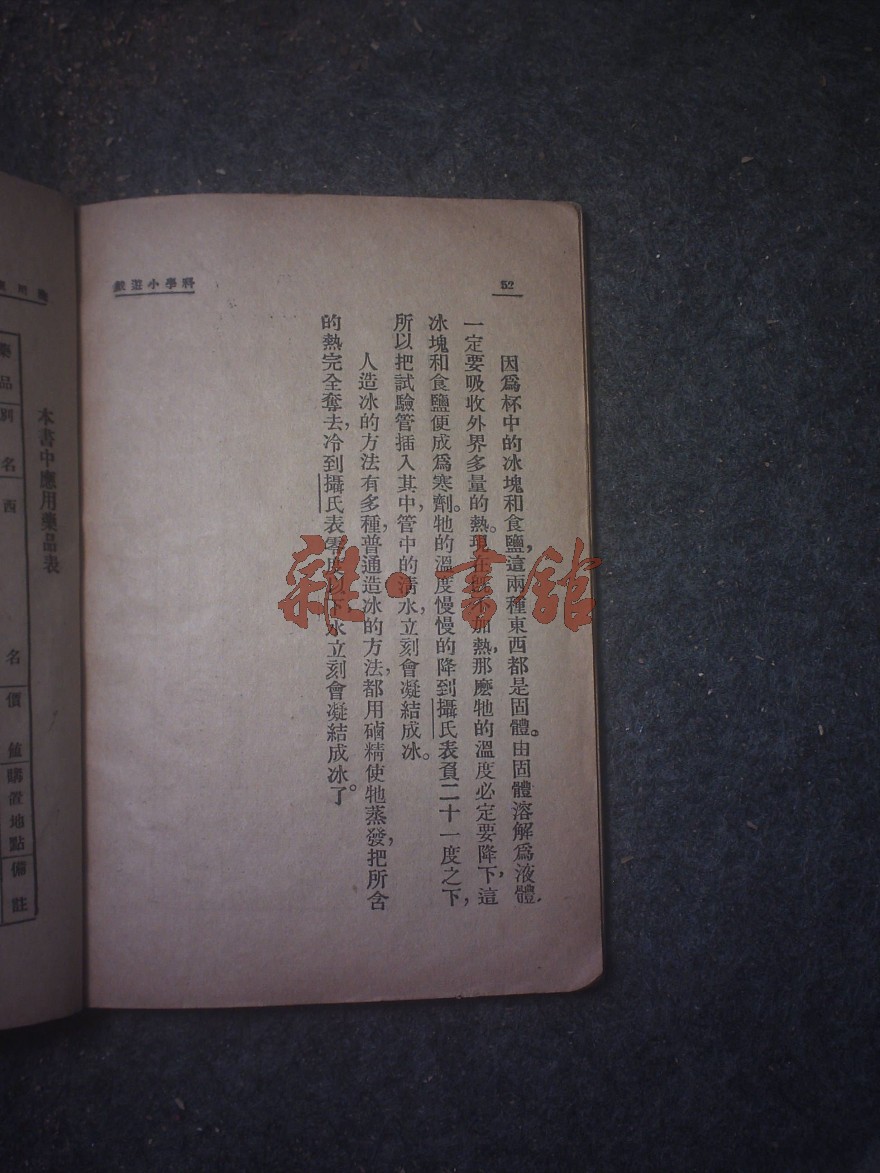 52
科學小遊戲
因爲杯中的冰塊和食鹽,這兩種東西都是固體。由固體溶解爲液體,
一定要吸收外界多量的熱。現在既不加熱,那麽牠的溫度必定要降下,這
冰塊和食鹽便成爲寒劑。牠的溫度慢慢的降到攝氏表負二十一度之下,
所以把試驗管插入其中,管中的淸水,立刻會凝結成冰。
人造冰的方法有多種,普通造冰的方法,都用硇精使牠蒸發,把所含
的熱完全奪去,冷到攝氏表零度以下水立刻會凝結成冰了。
雜·書館
本書中應用藥品表
藥品
別名
西名
價値
購置地點
備註